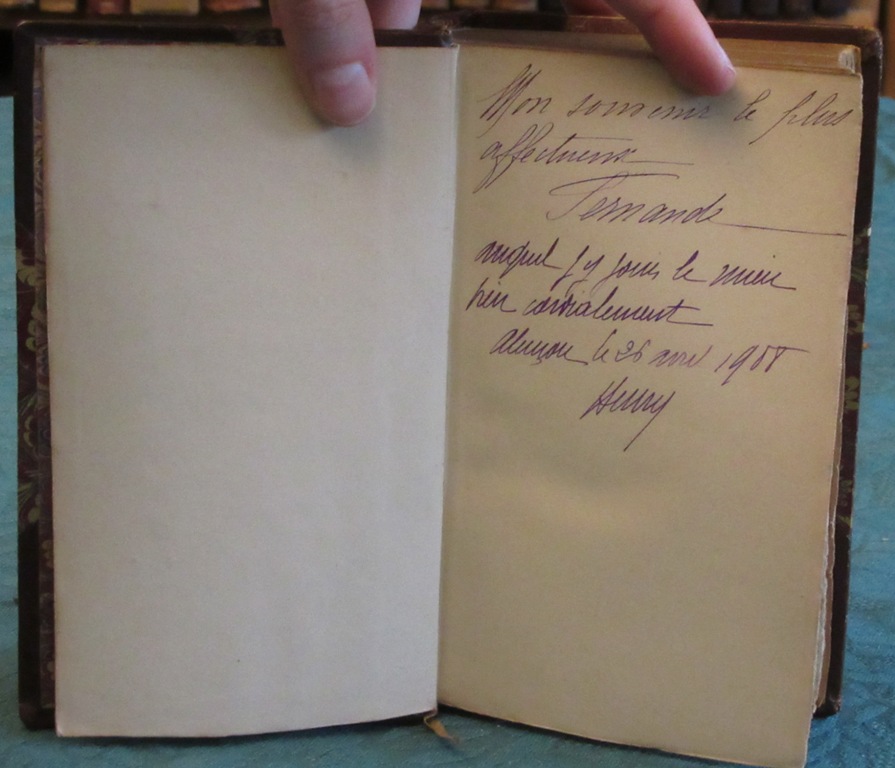 Mon souvenir le plus
affectueux
Fernande
auquel j'y joins le mien
bien cordialement
Alençon le 26 avril 1908
Henry